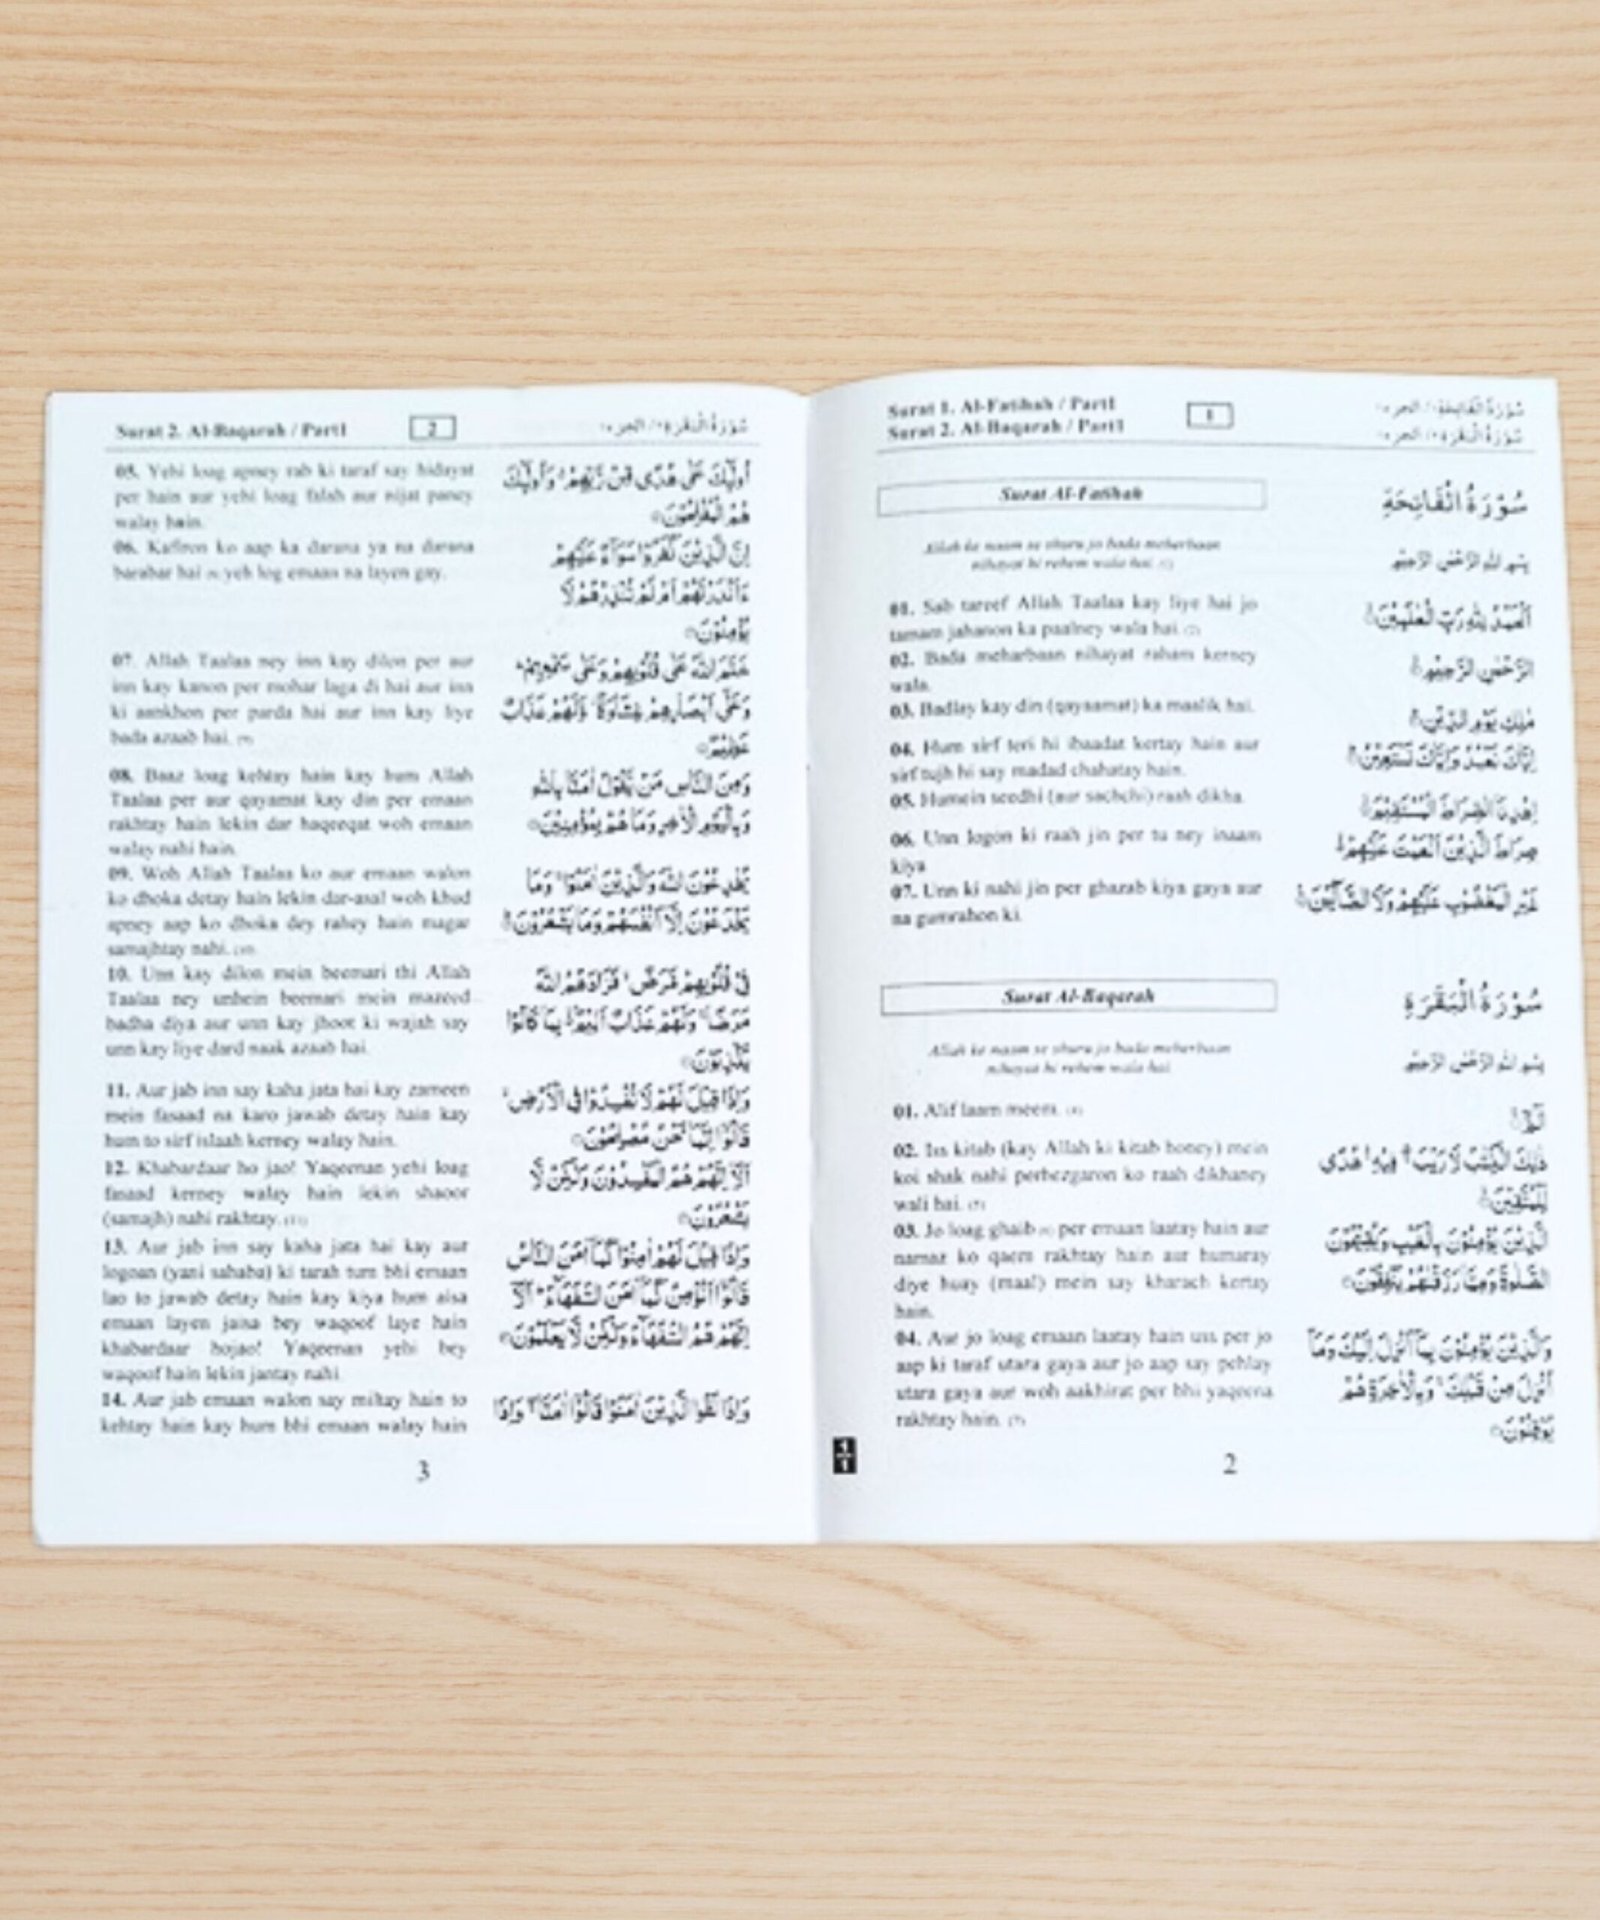 Surat 1. Al-Fatihah / Part1
Surat 2. Al-Baqarah / Part1
1
سُوْرَةُ الْفَاتِحَةِ ١ / الجزء ١
سُوْرَةُ الْبَقَرَةِ ٢ / الجزء ١
Surat Al-Fatihah
Allah ke naam se shuru jo bada meherbaan
nihayat hi rehem wala hai. (1)
01. Sab tareef Allah Taalaa kay liye hai jo
tamam jahanon ka paalney wala hai. (2)
02. Bada meharbaan nihayat raham kerney
wala.
03. Badlay kay din (qayaamat) ka maalik hai.
04. Hum sirf teri hi ibaadat kertay hain aur
sirf tujh hi say madad chahatay hain.
05. Humein seedhi (aur sachchi) raah dikha.
06. Unn logon ki raah jin per tu ney inaam
kiya
07. Unn ki nahi jin per ghazab kiya gaya aur
na gumrahon ki.
سُوْرَةُ الْفَاتِحَةِ
بِسْمِ اللهِ الرَّحْمٰنِ الرَّحِيْمِ
اَلْحَمْدُ لِلّٰهِ رَبِّ الْعٰلَمِيْنَ
الرَّحْمٰنِ الرَّحِيْمِ
مٰلِكِ يَوْمِ الدِّيْنِ
اِيَّاكَ نَعْبُدُ وَاِيَّاكَ نَسْتَعِيْنُ
اِهْدِنَا الصِّرَاطَ الْمُسْتَقِيْمَ
صِرَاطَ الَّذِيْنَ اَنْعَمْتَ عَلَيْهِمْ
غَيْرِ الْمَغْضُوْبِ عَلَيْهِمْ وَلَا الضَّآلِّيْنَ
Surat Al-Baqarah
Allah ke naam se shuru jo bada meherbaan
nihayat hi rehem wala hai
01. Alif laam meem. (4)
02. Iss kitab (kay Allah ki kitab honey) mein
koi shak nahi perhezgaron ko raah dikhaney
wali hai. (5)
03. Jo loag ghaib (6) per emaan laatay hain aur
namaz ko qaem rakhtay hain aur humaray
diye huay (maal) mein say kharach kertay
hain.
04. Aur jo loag emaan laatay hain uss per jo
aap ki taraf utara gaya aur jo aap say pehlay
utara gaya aur woh aakhirat per bhi yaqeena
rakhtay hain. (7)
سُوْرَةُ الْبَقَرَةِ
بِسْمِ اللهِ الرَّحْمٰنِ الرَّحِيْمِ
الٓمّٓ
ذٰلِكَ الْكِتٰبُ لَا رَيْبَ فِيْهِ هُدًى
لِّلْمُتَّقِيْنَ
الَّذِيْنَ يُؤْمِنُوْنَ بِالْغَيْبِ وَيُقِيْمُوْنَ
الصَّلٰوةَ وَمِمَّا رَزَقْنٰهُمْ يُنْفِقُوْنَ
وَالَّذِيْنَ يُؤْمِنُوْنَ بِمَآ اُنْزِلَ اِلَيْكَ وَمَآ
اُنْزِلَ مِنْ قَبْلِكَ وَبِالْاٰخِرَةِ هُمْ
يُوْقِنُوْنَ
1
1
2
Surat 2. Al-Baqarah / Part1
2
سُوْرَةُ الْبَقَرَةِ ٢ / الجزء ١
05. Yehi loag apney rab ki taraf say hidayat
per hain aur yehi loag falah aur nijat paney
walay hain.
06. Kafiron ko aap ka darana ya na darana
barabar hai (8) yeh log emaan na layen gay.
07. Allah Taalaa ney inn kay dilon per aur
inn kay kanon per mohar laga di hai aur inn
ki aankhon per parda hai aur inn kay liye
bada azaab hai. (9)
08. Baaz loag kehtay hain kay hum Allah
Taalaa per aur qayamat kay din per emaan
rakhtay hain lekin dar haqeeqat woh emaan
walay nahi hain.
09. Woh Allah Taalaa ko aur emaan walon
ko dhoka detay hain lekin dar-asal woh khud
apney aap ko dhoka dey rahey hain magar
samajhtay nahi. (10)
10. Unn kay dilon mein beemari thi Allah
Taalaa ney unhein beemari mein mazeed
badha diya aur unn kay jhoot ki wajah say
unn kay liye dard naak azaab hai.
11. Aur jab inn say kaha jata hai kay zameen
mein fasaad na karo jawab detay hain kay
hum to sirf islaah kerney walay hain.
12. Khabardaar ho jao! Yaqeenan yehi loag
fasaad kerney walay hain lekin shaoor
(samajh) nahi rakhtay. (11)
13. Aur jab inn say kaha jata hai kay aur
logoan (yani sahaba) ki tarah tum bhi emaan
lao to jawab detay hain kay kiya hum aisa
emaan layen jaisa bey waqoof laye hain
khabardaar hojao! Yaqeenan yehi bey
waqoof hain lekin jantay nahi.
14. Aur jab emaan walon say miltay hain to
kehtay hain kay hum bhi emaan walay hain
اُولٰٓئِكَ عَلٰى هُدًى مِّنْ رَّبِّهِمْ وَاُولٰٓئِكَ
هُمُ الْمُفْلِحُوْنَ
اِنَّ الَّذِيْنَ كَفَرُوْا سَوَآءٌ عَلَيْهِمْ
ءَاَنْذَرْتَهُمْ اَمْ لَمْ تُنْذِرْهُمْ لَا
يُؤْمِنُوْنَ
خَتَمَ اللهُ عَلٰى قُلُوْبِهِمْ وَعَلٰى سَمْعِهِمْ
وَعَلٰٓى اَبْصَارِهِمْ غِشَاوَةٌ وَّلَهُمْ عَذَابٌ
عَظِيْمٌ
وَمِنَ النَّاسِ مَنْ يَّقُوْلُ اٰمَنَّا بِاللهِ
وَبِالْيَوْمِ الْاٰخِرِ وَمَا هُمْ بِمُؤْمِنِيْنَ
يُخٰدِعُوْنَ اللهَ وَالَّذِيْنَ اٰمَنُوْا وَمَا
يَخْدَعُوْنَ اِلَّآ اَنْفُسَهُمْ وَمَا يَشْعُرُوْنَ
فِيْ قُلُوْبِهِمْ مَّرَضٌ فَزَادَهُمُ اللهُ
مَرَضًا وَلَهُمْ عَذَابٌ اَلِيْمٌ بِمَا كَانُوْا
يَكْذِبُوْنَ
وَاِذَا قِيْلَ لَهُمْ لَا تُفْسِدُوْا فِى الْاَرْضِ
قَالُوْٓا اِنَّمَا نَحْنُ مُصْلِحُوْنَ
اَلَآ اِنَّهُمْ هُمُ الْمُفْسِدُوْنَ وَلٰكِنْ لَّا
يَشْعُرُوْنَ
وَاِذَا قِيْلَ لَهُمْ اٰمِنُوْا كَمَآ اٰمَنَ النَّاسُ
قَالُوْٓا اَنُؤْمِنُ كَمَآ اٰمَنَ السُّفَهَآءُ اَلَآ
اِنَّهُمْ هُمُ السُّفَهَآءُ وَلٰكِنْ لَّا يَعْلَمُوْنَ
وَاِذَا لَقُوا الَّذِيْنَ اٰمَنُوْا قَالُوْٓا اٰمَنَّا وَاِذَا
3